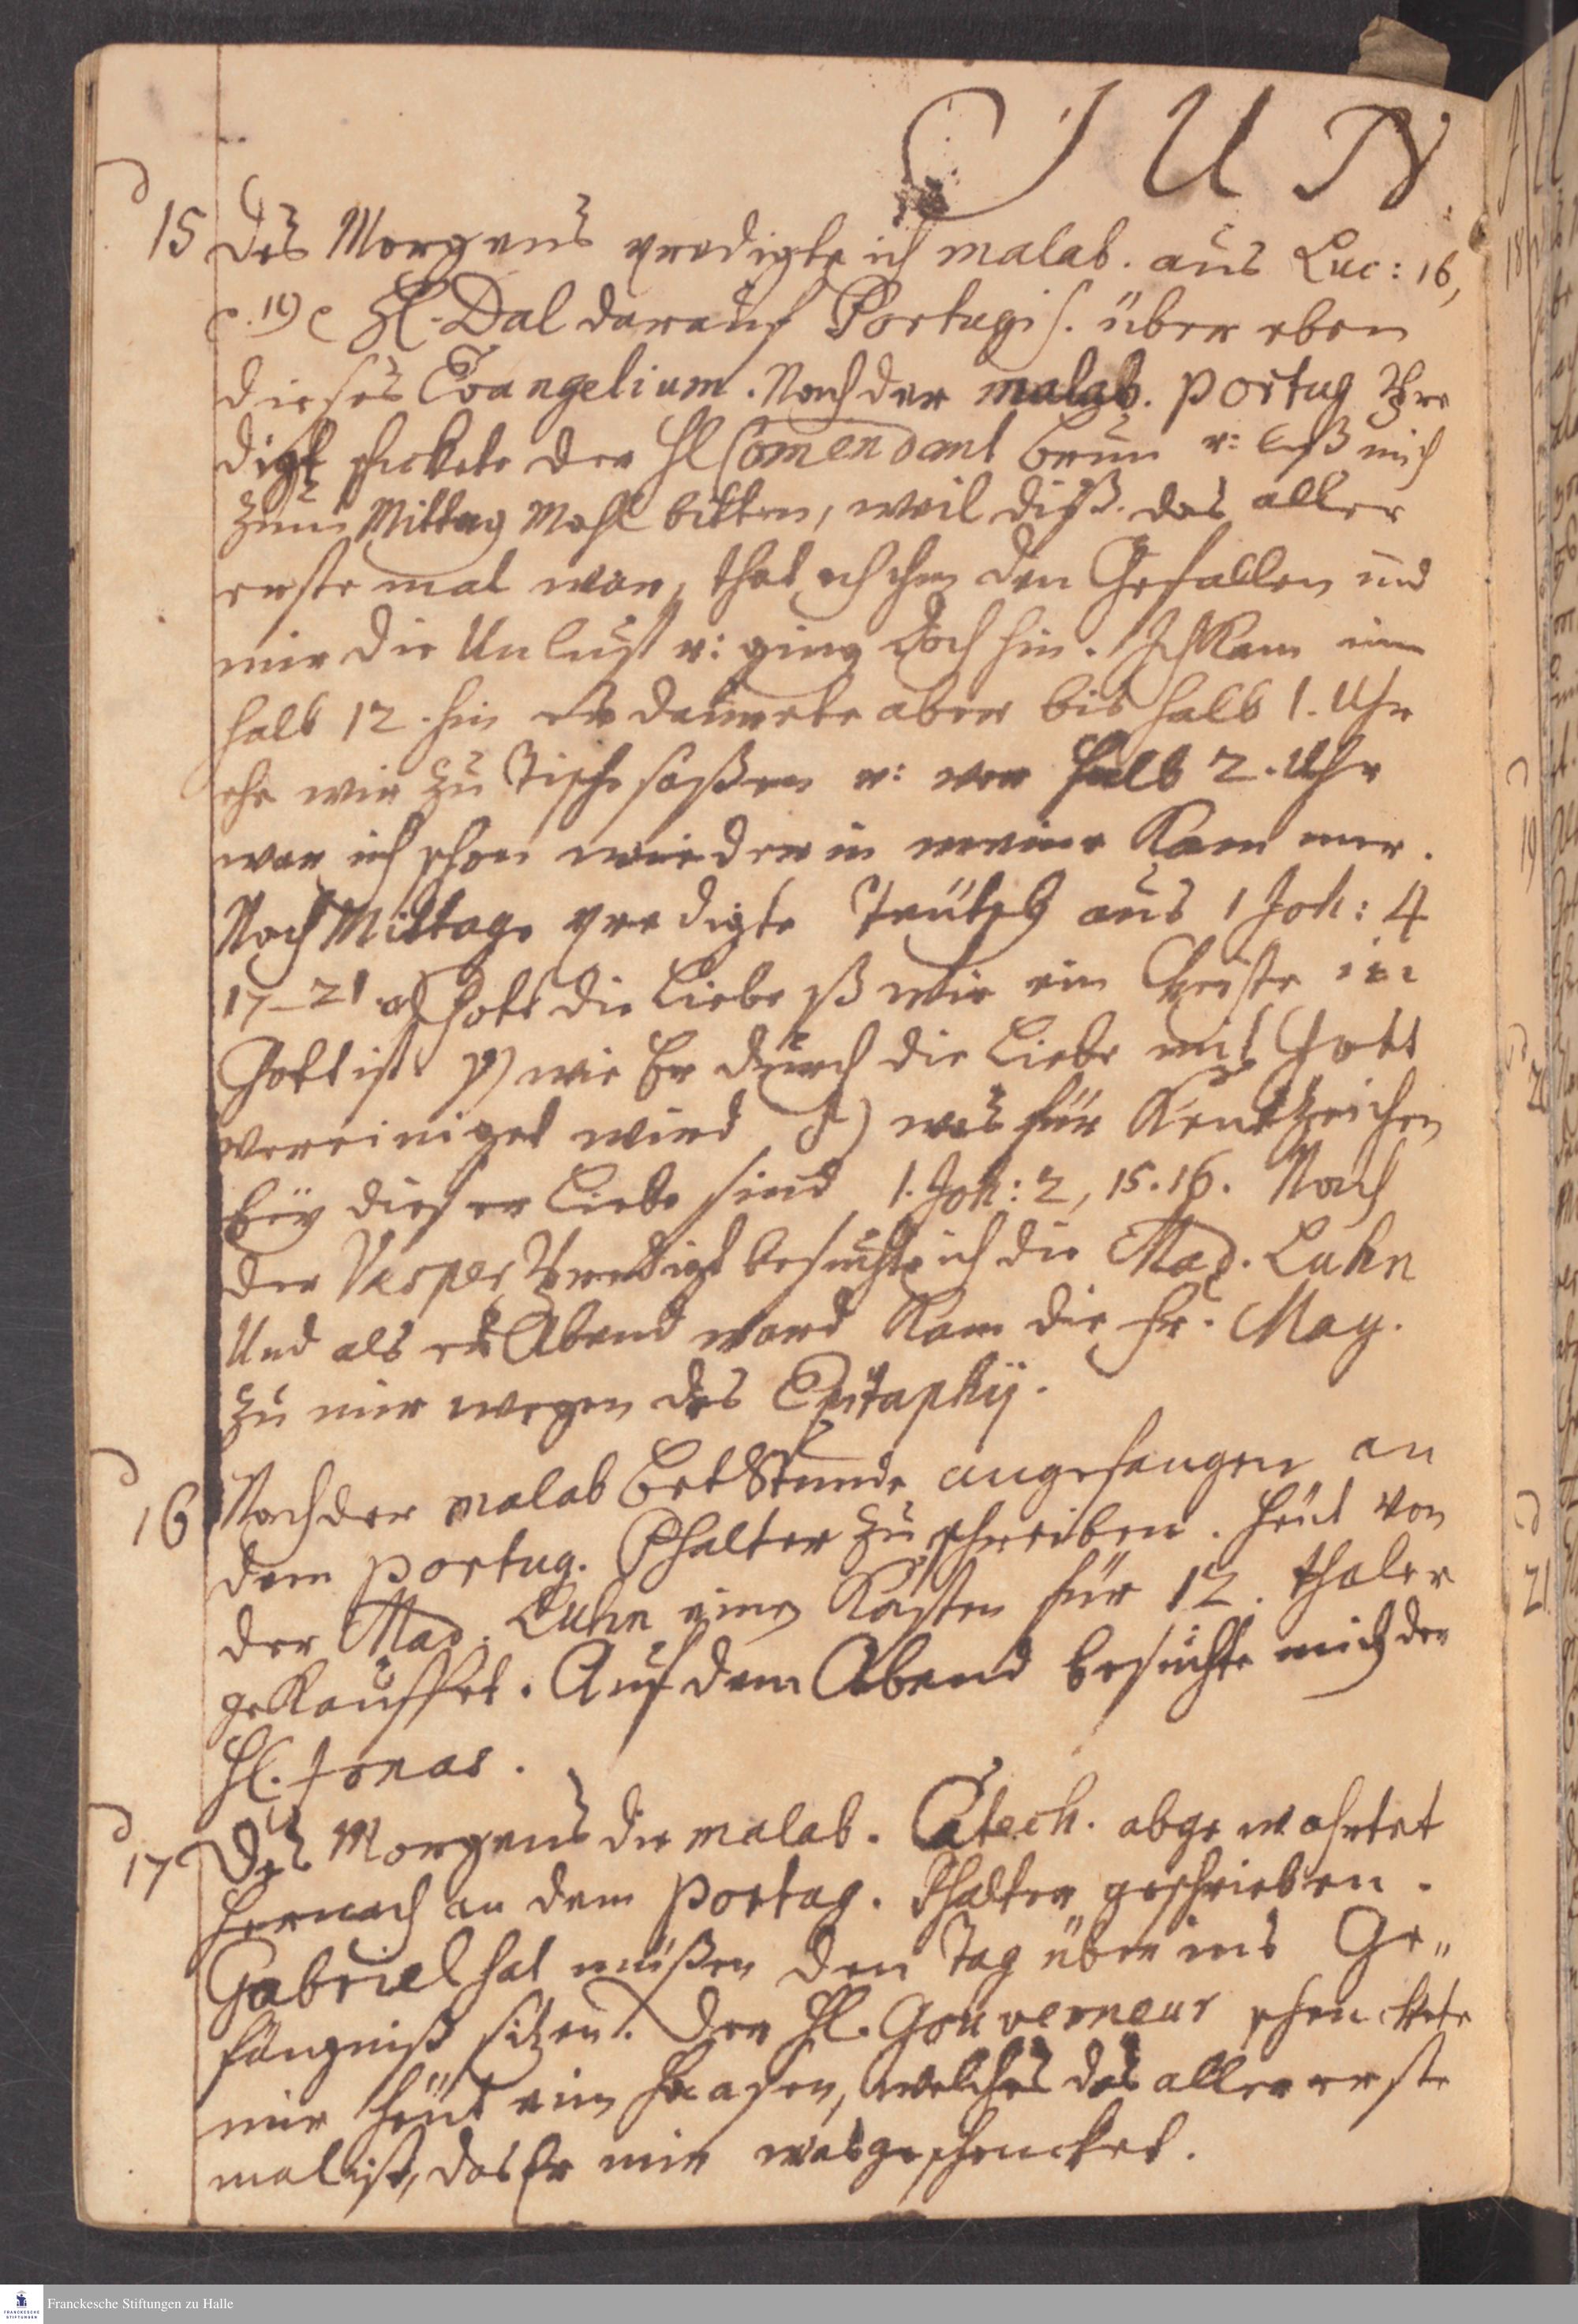 JUN
15 Des Morgens predigte ich malab. aus Luc: 16,
v. 19 Hl. Dal darauf Portugis. über eben
dieses Evangelium. Nach der malab. portug Pre
digt schickete der Hl Comendant v: ließ mich
zum Mittag Mahl bitten, weil diß das aller
erste mal war, that ich ihm den Gefallen und
mir die Unlust v: ging doch hin. Ich kam um
halb 12. hin es dauerete aber bis halb 1. Uhr
ehe wir zu Tische saßen v: vor halb 2. Uhr
war ich schon wieder in meiner Kammer.
Nach Mittage predigte Teütsch aus 1 Joh: 4
17-21 Gott die Liebe ist wie ein Christe in
Gott ist wie Er durch die Liebe mit Gott
vereiniget wird was für Kentzeichen
bey dieser Liebe sind 1. Joh: 2, 15. 16. Nach
der Vesper Predigt besuchte ich die Mad. Luhn
Und als es Abend ward kam die Fr. May.
zu mir wegen des Epitaphij.
16 Nach der malab Bet Stunde angefangen an
dem portug. Psalter zu schreiben. Heut von
der Mad. Luhn einen Kasten für 12. thaler
gekauffet. Auf dem Abend besuchte mich der
Hl. Jonas.
17 Des Morgens die malab. Catech. abgewahrtet
hernach an dem portug. Psalter geschrieben.
Gabriel hat müßen den Tag über ins Ge„
fängniß sitzen. Der Hl. Gouverneur schenckete
mir heüt ein Haasen, welches das aller erste
mal ist, das Er mir was geschencket.
18
19
20
21
Franckesche Stiftungen zu Halle